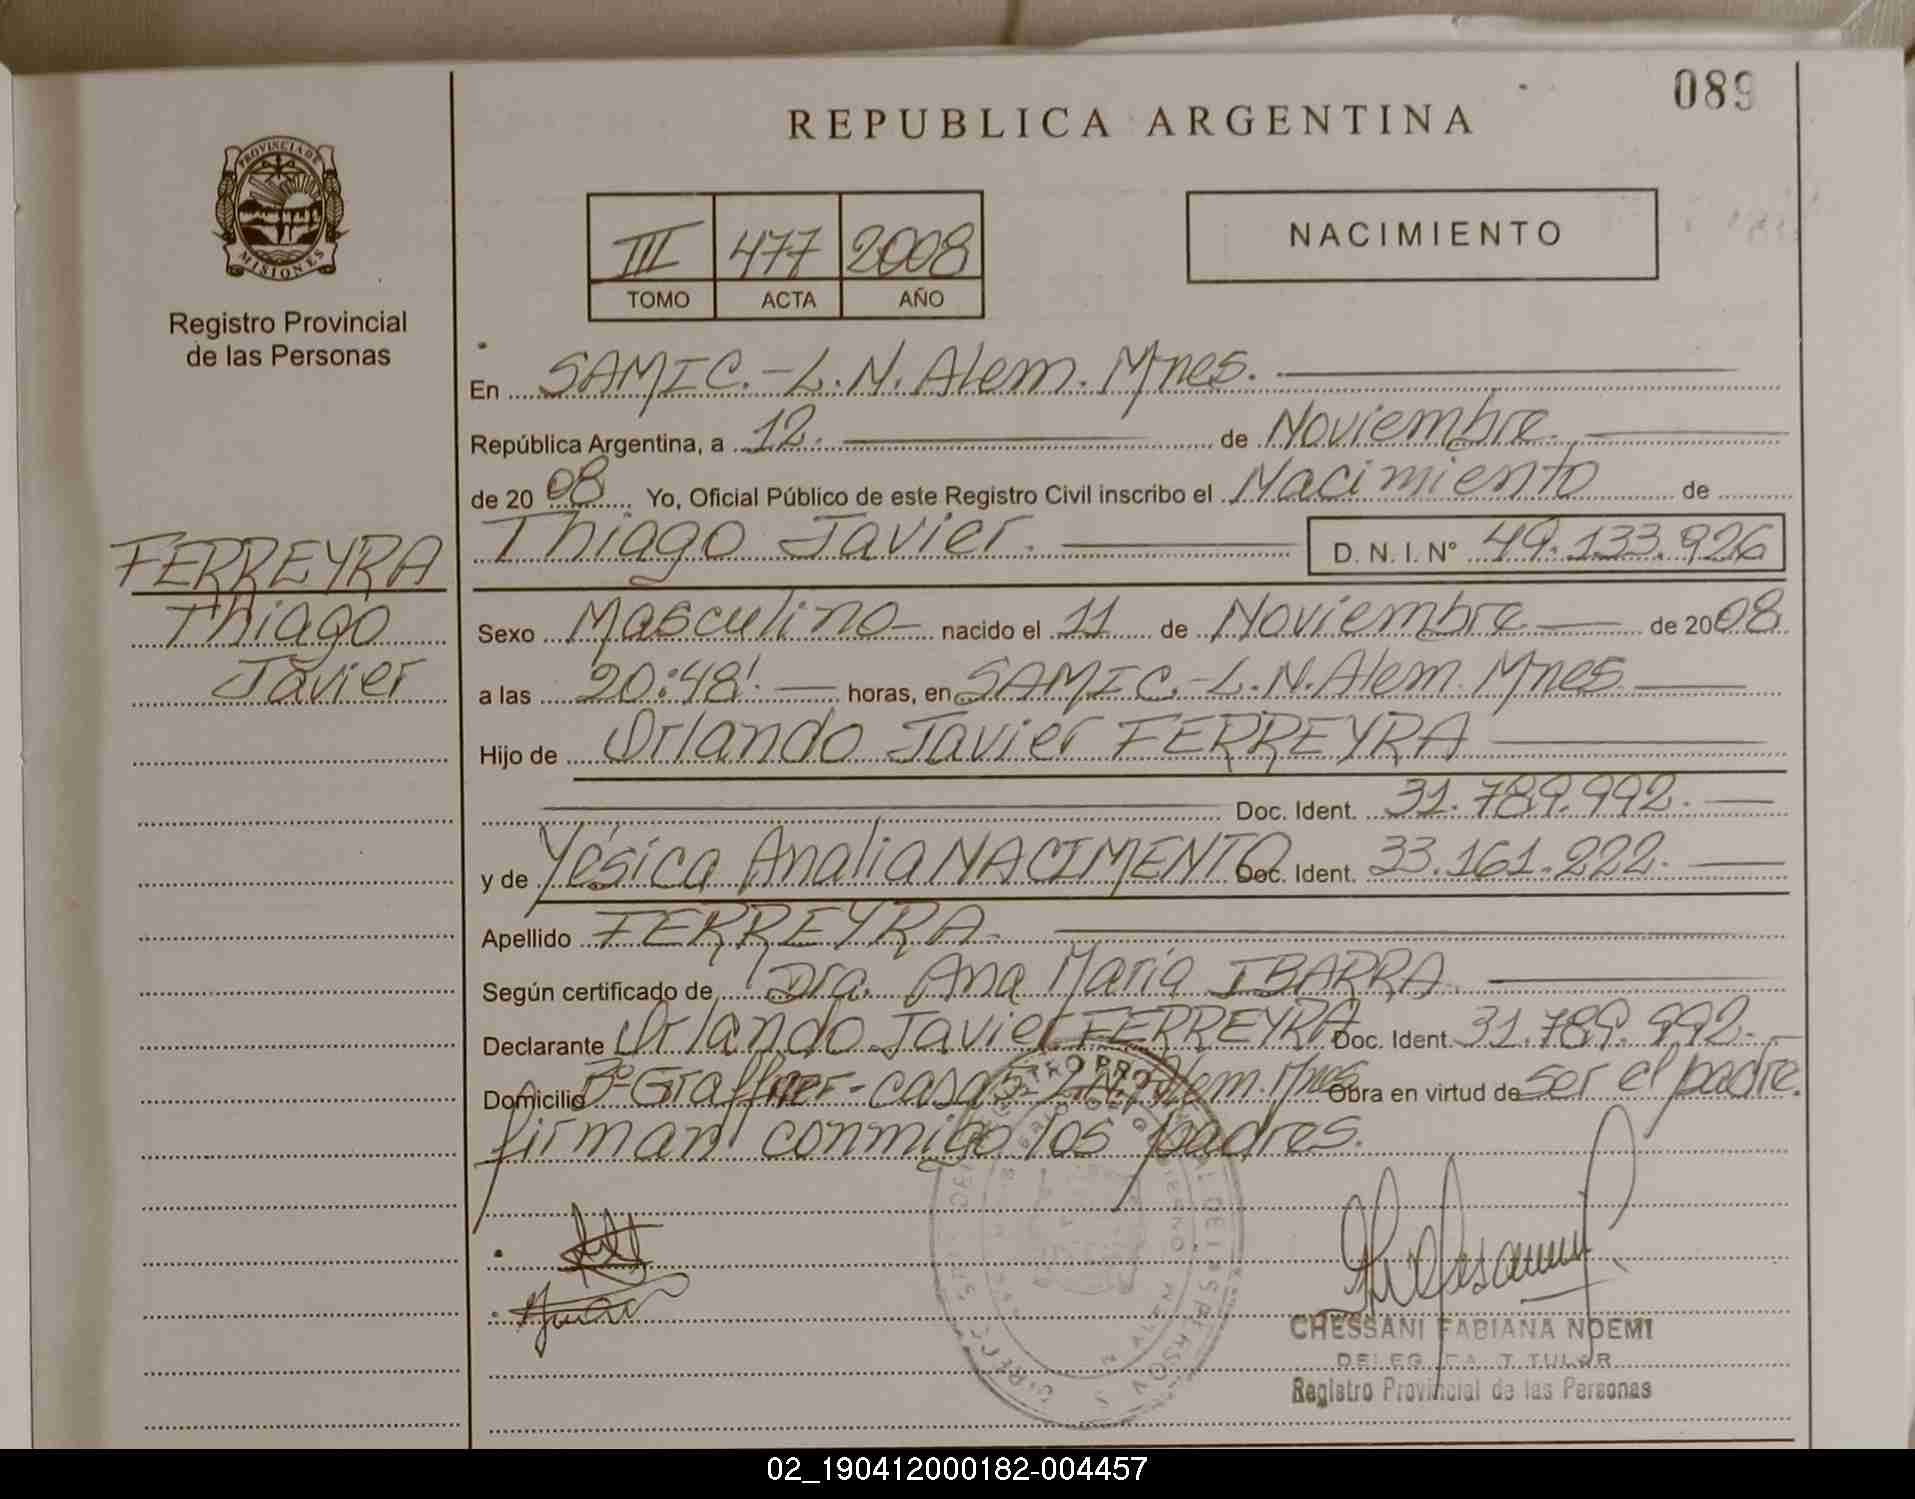 089
REPUBLICA ARGENTINA
PROVINCIA DE
MISIONES
Registro Provincial
de las Personas
III 477 2008
TOMO ACTA AÑO
NACIMIENTO
En SAMIC.-L.N.Alem.Mnes.
República Argentina, a 12. de Noviembre.
de 20 08 Yo, Oficial Público de este Registro Civil inscribo el Nacimiento de
Thiago Javier. D. N. I. N° 49.133.926
FERREYRA
Thiago
Javier
Sexo Masculino nacido el 11 de Noviembre de 2008
a las 20:48'. horas, en SAMIC.-L.N.Alem.Mnes
Hijo de Orlando Javier FERREYRA
Doc. Ident. 31.789.992.
y de Yésica Analia NACIMENTO Doc. Ident. 33.161.222.
Apellido FERREYRA.
Según certificado de Dra. Ana María IBARRA.
Declarante Orlando Javier FERREYRA Doc. Ident. 31.789.992.
Domicilio B° Graffner-casa 5-L.N.Alem.Mnes Obra en virtud de ser el padre.
firman conmigo los padres.
CHESSANI FABIANA NOEMI
DELEGADA TITULAR
Registro Provincial de las Personas
02_190412000182-004457